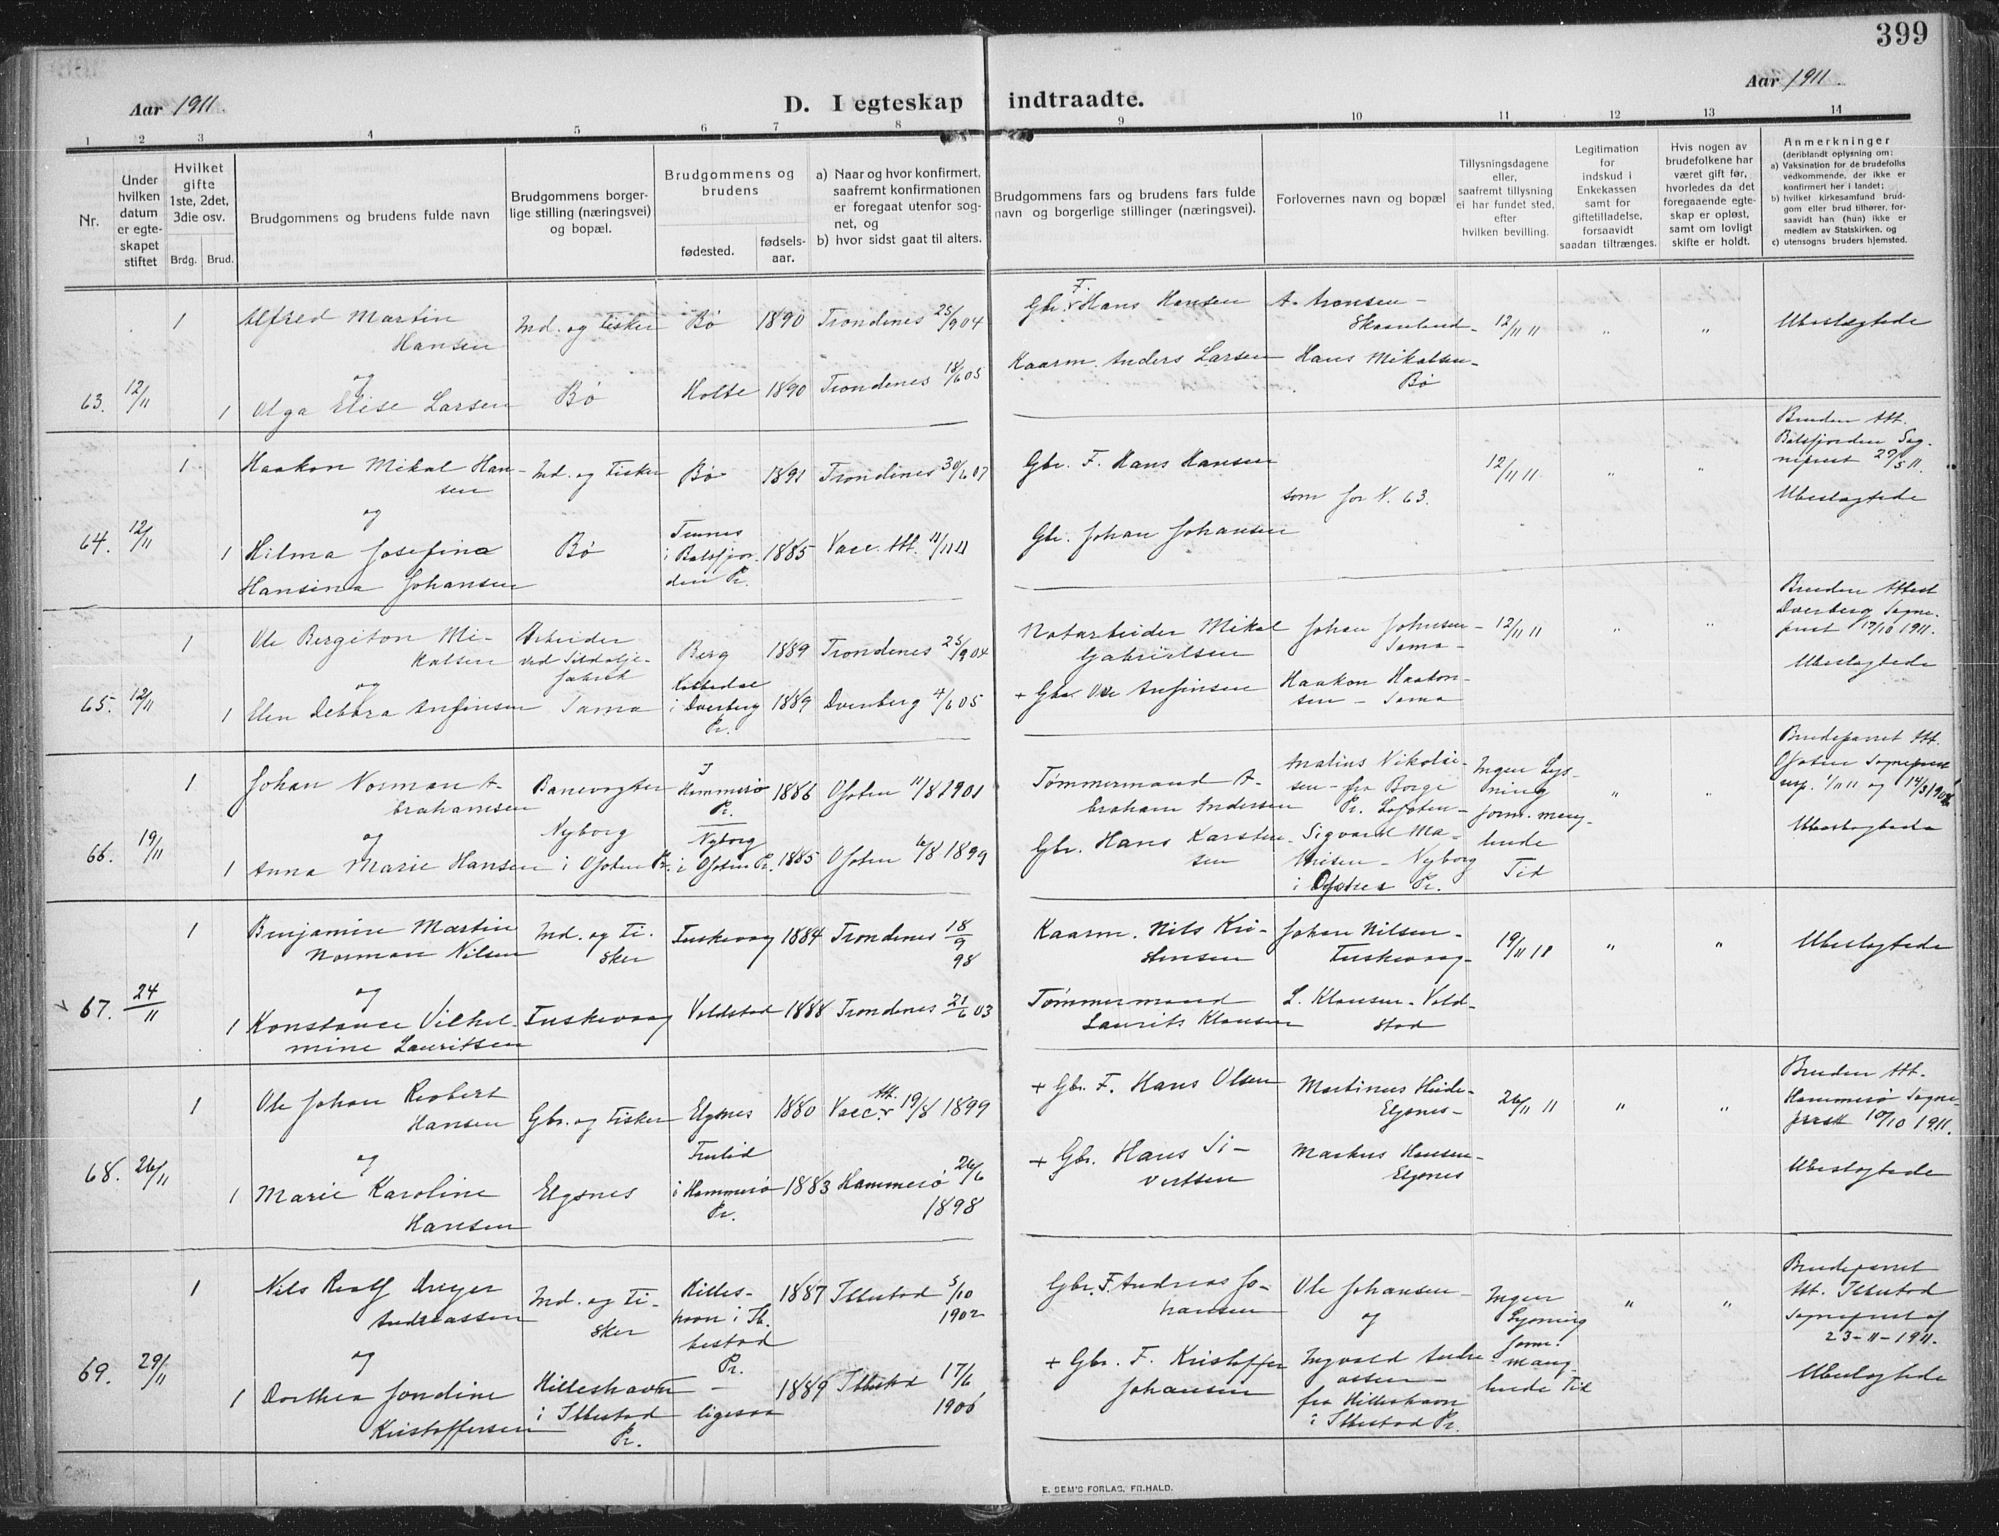 399
Aar 1911.
D. I egteskap indtraadte.
Aar 1911
1 2 3 4 5 6 7 8 9 10 11 12 13 14
Nr.
Under hvilken datum er egteskapet stiftet
Hvilket gifte 1ste, 2det, 3die osv.
Brdg. Brud.
Brudgommens og brudens fulde navn
Brudgommens borgerlige stilling (næringsvei) og bopæl.
Brudgommens og brudens
fødested.
fødselsaar.
a) Naar og hvor konfirmert, saafremt konfirmationen er foregaat utenfor sognet, og
b) hvor sidst gaat til alters.
Brudgommens fars og brudens fars fulde navn og borgerlige stillinger (næringsvei).
Forlovernes navn og bopæl
Tillysningsdagene eller, saafremt tillysning ei har fundet sted, efter hvilken bevilling.
Legitimation for indskud i Enkekassen samt for giftetilladelse, forsaavidt saadan tiltrænges.
Hvis nogen av brudefolkene har været gift før, hvorledes da det foregaaende egteskap er opløst, samt om lovligt skifte er holdt.
Anmerkninger
(deriblandt oplysning om:
a) Vaksination for de brudefolks vedkommende, der ikke er konfirmert her i landet;
b) hvilket kirkesamfund brudgom eller brud tilhører, forsaavidt han (hun) ikke er medlem av Statskirken, og
c) utensogns bruders hjemsted.
63. 12/11
1 Alfred Martin Hansen Ind. og fisker Bø 1890 Trondenes 25/9 04
og
1 Olga Elise Larsen Bø Holte 1890 Trondenes 18/6 05
Gbr. F. Hans Hansen
Kaarm. Anders Larsen
A. Aronsen – Skaanland –
Hans Mikalsen – Bø
12/11 11 " " Ubeslægtede
64. 12/11
1 Haakon Mikal Hansen Ind. og fisker Bø 1891 Trondenes 30/6 07
og
1 Hilma Josefina Hansina Johansen Bø
i Balsfjorden Pr. 1885 Vacc. Att. 11/11 11
Gbr. F. Hans Hansen
Gbr. Johan Johansen
som for N. 63.
12/11 11 " "
Bruden Att. Balsfjorden Sogneprest 29/5 11.
Ubeslægtede
65. 12/11
1 Ole Bergiton Mikalsen Arbeider ved Sildoljefabrik Berg 1889 Trondenes 25/9 04
og
1 Elen Debora Anfinsen Sama
i Dverberg Pr. 1889 Dverberg 4/6 05
Notarbeider Mikal Gabrielsen
+ Gbr. Ole Anfinsen
Johan Johnsen – Sama –
Haakon Haakonsen – Sama
12/11 11 " "
Bruden Attest Dverberg Sogneprest 17/10 1911.
Ubeslægtede
66. 19/11
1 Johan Norman Abrahamsen Banevogter I Hammerø Pr. 1886 Ofoten 11/8 1901
og
1 Anna Marie Hansen Nyborg i Ofoten Pr. Nyborg i Ofoten Pr. 1885 Ofoten 6/8 1899
Tømmermand Abraham Andersen
Gbr. Hans Karstensen
Analius Nikolaisen – fra Borge Pr. Lofoten –
Sigvard Mathisen – Nyborg i Ofoten Pr.
Ingen Lysning form. manglende Tid
" "
Brudeparret Att. Ofoten Sogneprest resp. 1/11 11 og
Ubeslægtede
67. 24/11
1 Benjamin Martin Norman Nilsen Ind. og fisker Fuskevaag 1884 Trondenes 18/9 98
og
1 Konstance Vilhelmine Lauritsen Fuskevaag Voldstad 1888 Trondenes 21/6 03
Kaarm. Nils Kristensen
Tømmermand Laurits Klausen
Johan Nilsen – Fuskevaag –
L. Klausen – Voldstad
19/11 18 " " Ubeslægtede
68. 26/11
1 Ole Johan Robert Hansen Gbr. og fisker Elgsnes 1880 Vacc. Att. 19/8 1899
og
1 Marie Karoline Hansen Elgsnes
i Hammerø Pr. 1883 Hammerø 26/6 1898
+ Gbr. F. Hans Olsen
+ Gbr. Hans Sivertsen
Martinus Heide – Elgsnes –
Markus Hansen – Elgsnes
26/11 11 " "
Bruden Att. Hammerø Sogneprest 10/10 1911.
Ubeslægtede
69. 29/11
1 Nils Rolf Dreyer Andreassen Ind. og fisker Hilleshavn i Ibbestad Pr. 1887 Ibbestad 5/10 1902
og
1 Dorthea Jondine Kristoffersen Hilleshavn i Ibbestad Pr. – ligesaa 1889 Ibbestad 17/6 1906
Gbr. F. Andreas Johansen
+ Gbr. F. Kristoffer Johansen
Ole Johansen –
og
Ingvald Andreassen – fra Hilleshavn i Ibbestad Pr.
Ingen Lysning form. manglende Tid
" "
Brudeparret Att. Ibbestad Sogneprest af 23-11-1911.
Ubeslægtede
E. SEM'S FORLAG, FR.HALD.